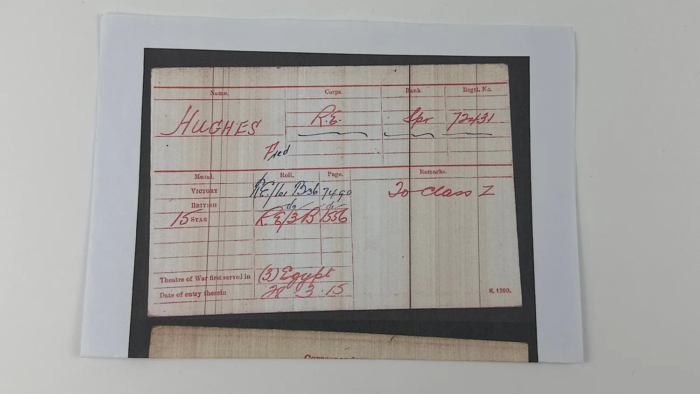 Name. Corps. Rank Regtl. No.
HUGHES R.E. Spr 72431
Fred
Medal. Roll. Page. Remarks.
VICTORY RE/101 B36 7490 To Class Z
BRITISH do do
15 STAR R.E/3B 556
Theatre of War first served in (3) Egypt
Date of entry therein 28.3.15
K. 1380.